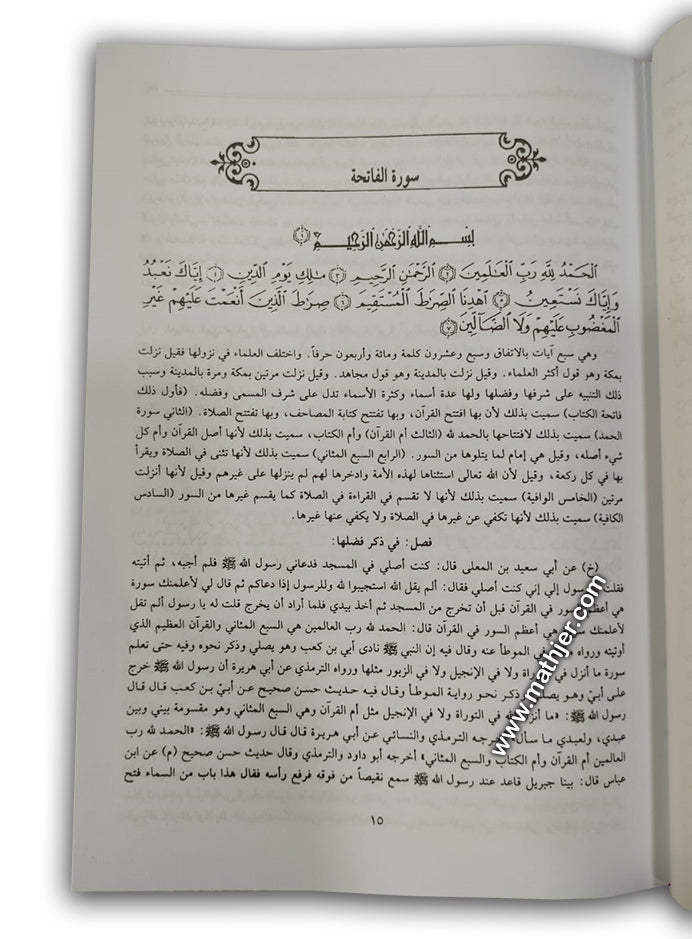 سورة الفاتحة
بِسْمِ اللَّهِ الرَّحْمَٰنِ الرَّحِيمِ ﴿١﴾
الْحَمْدُ لِلَّهِ رَبِّ الْعَالَمِينَ ﴿٢﴾ الرَّحْمَٰنِ الرَّحِيمِ ﴿٣﴾ مَالِكِ يَوْمِ الدِّينِ ﴿٤﴾ إِيَّاكَ نَعْبُدُ
وَإِيَّاكَ نَسْتَعِينُ ﴿٥﴾ اهْدِنَا الصِّرَاطَ الْمُسْتَقِيمَ ﴿٦﴾ صِرَاطَ الَّذِينَ أَنْعَمْتَ عَلَيْهِمْ غَيْرِ
الْمَغْضُوبِ عَلَيْهِمْ وَلَا الضَّالِّينَ ﴿٧﴾
وهي سبع آيات بالاتفاق وسبع وعشرون كلمة ومائة وأربعون حرفاً. واختلف العلماء في نزولها فقيل نزلت
بمكة وهو قول أكثر العلماء. وقيل نزلت بالمدينة وهو قول مجاهد. وقيل نزلت مرتين بمكة ومرة بالمدينة وسبب
ذلك التنبيه على شرفها وفضلها ولها عدة أسماء وكثرة الأسماء تدل على شرف المسمى وفضله. (فأول ذلك
فاتحة الكتاب) سميت بذلك لأن بها افتتح القرآن، وبها تفتتح كتابة المصاحف، وبها تفتتح الصلاة. (الثاني سورة
الحمد) سميت بذلك لافتتاحها بالحمد لله (الثالث أم القرآن) وأم الكتاب، سميت بذلك لأنها أصل القرآن وأم كل
شيء أصله، وقيل هي إمام لما يتلوها من السور. (الرابع السبع المثاني) سميت بذلك لأنها تثنى في الصلاة ويقرأ
بها في كل ركعة، وقيل لأن الله تعالى استثناها لهذه الأمة وادخرها لهم لم ينزلها على غيرهم وقيل لأنها أنزلت
مرتين (الخامس الوافية) سميت بذلك لأنها لا تقسم في القراءة في الصلاة كما يقسم غيرها من السور (السادس
الكافية) سميت بذلك لأنها تكفي عن غيرها في الصلاة ولا يكفي عنها غيرها.
فصل: في ذكر فضلها:
(خ) عن أبي سعيد بن المعلى قال: كنت أصلي في المسجد فدعاني رسول الله ﷺ فلم أجبه، ثم أتيته
فقلت رسول إني كنت أصلي فقال: ألم يقل الله استجيبوا لله وللرسول إذا دعاكم ثم قال لي لأعلمنك سورة
هي أعظم سور في القرآن قبل أن تخرج من المسجد ثم أخذ بيدي فلما أراد أن يخرج قلت له يا رسول ألم تقل
لأعلمنك هي أعظم السور في القرآن قال: الحمد لله رب العالمين هي السبع المثاني والقرآن العظيم الذي
أوتيته ورواه في الموطأ عنه وقال فيه إن النبي ﷺ نادى أبي بن كعب وهو يصلي وذكر نحوه وفيه حتى تعلم
سورة ما أنزل في ولا في الإنجيل ولا في الزبور مثلها ورواه الترمذي عن أبي هريرة أن رسول الله ﷺ خرج
على أبيّ وهو وذكر نحو رواية الموطأ وقال فيه حديث حسن صحيح عن أبيّ بن كعب قال قال
رسول الله ﷺ: «ما أنزل في التوراة ولا في الإنجيل مثل أم القرآن وهي السبع المثاني وهو مقسومة بيني وبين
عبدي، ولعبدي ما الترمذي والنسائي عن أبي هريرة قال قال رسول الله ﷺ: «الحمد لله رب
العالمين أم القرآن وأم الكتاب والسبع المثاني» أخرجه أبو داود والترمذي وقال حديث حسن صحيح (م) عن ابن
عباس قال: بينا جبريل قاعد عند رسول الله ﷺ سمع نقيصاً من فوقه فرفع رأسه فقال هذا باب من السماء فتح
١٥
www.mathjer.com